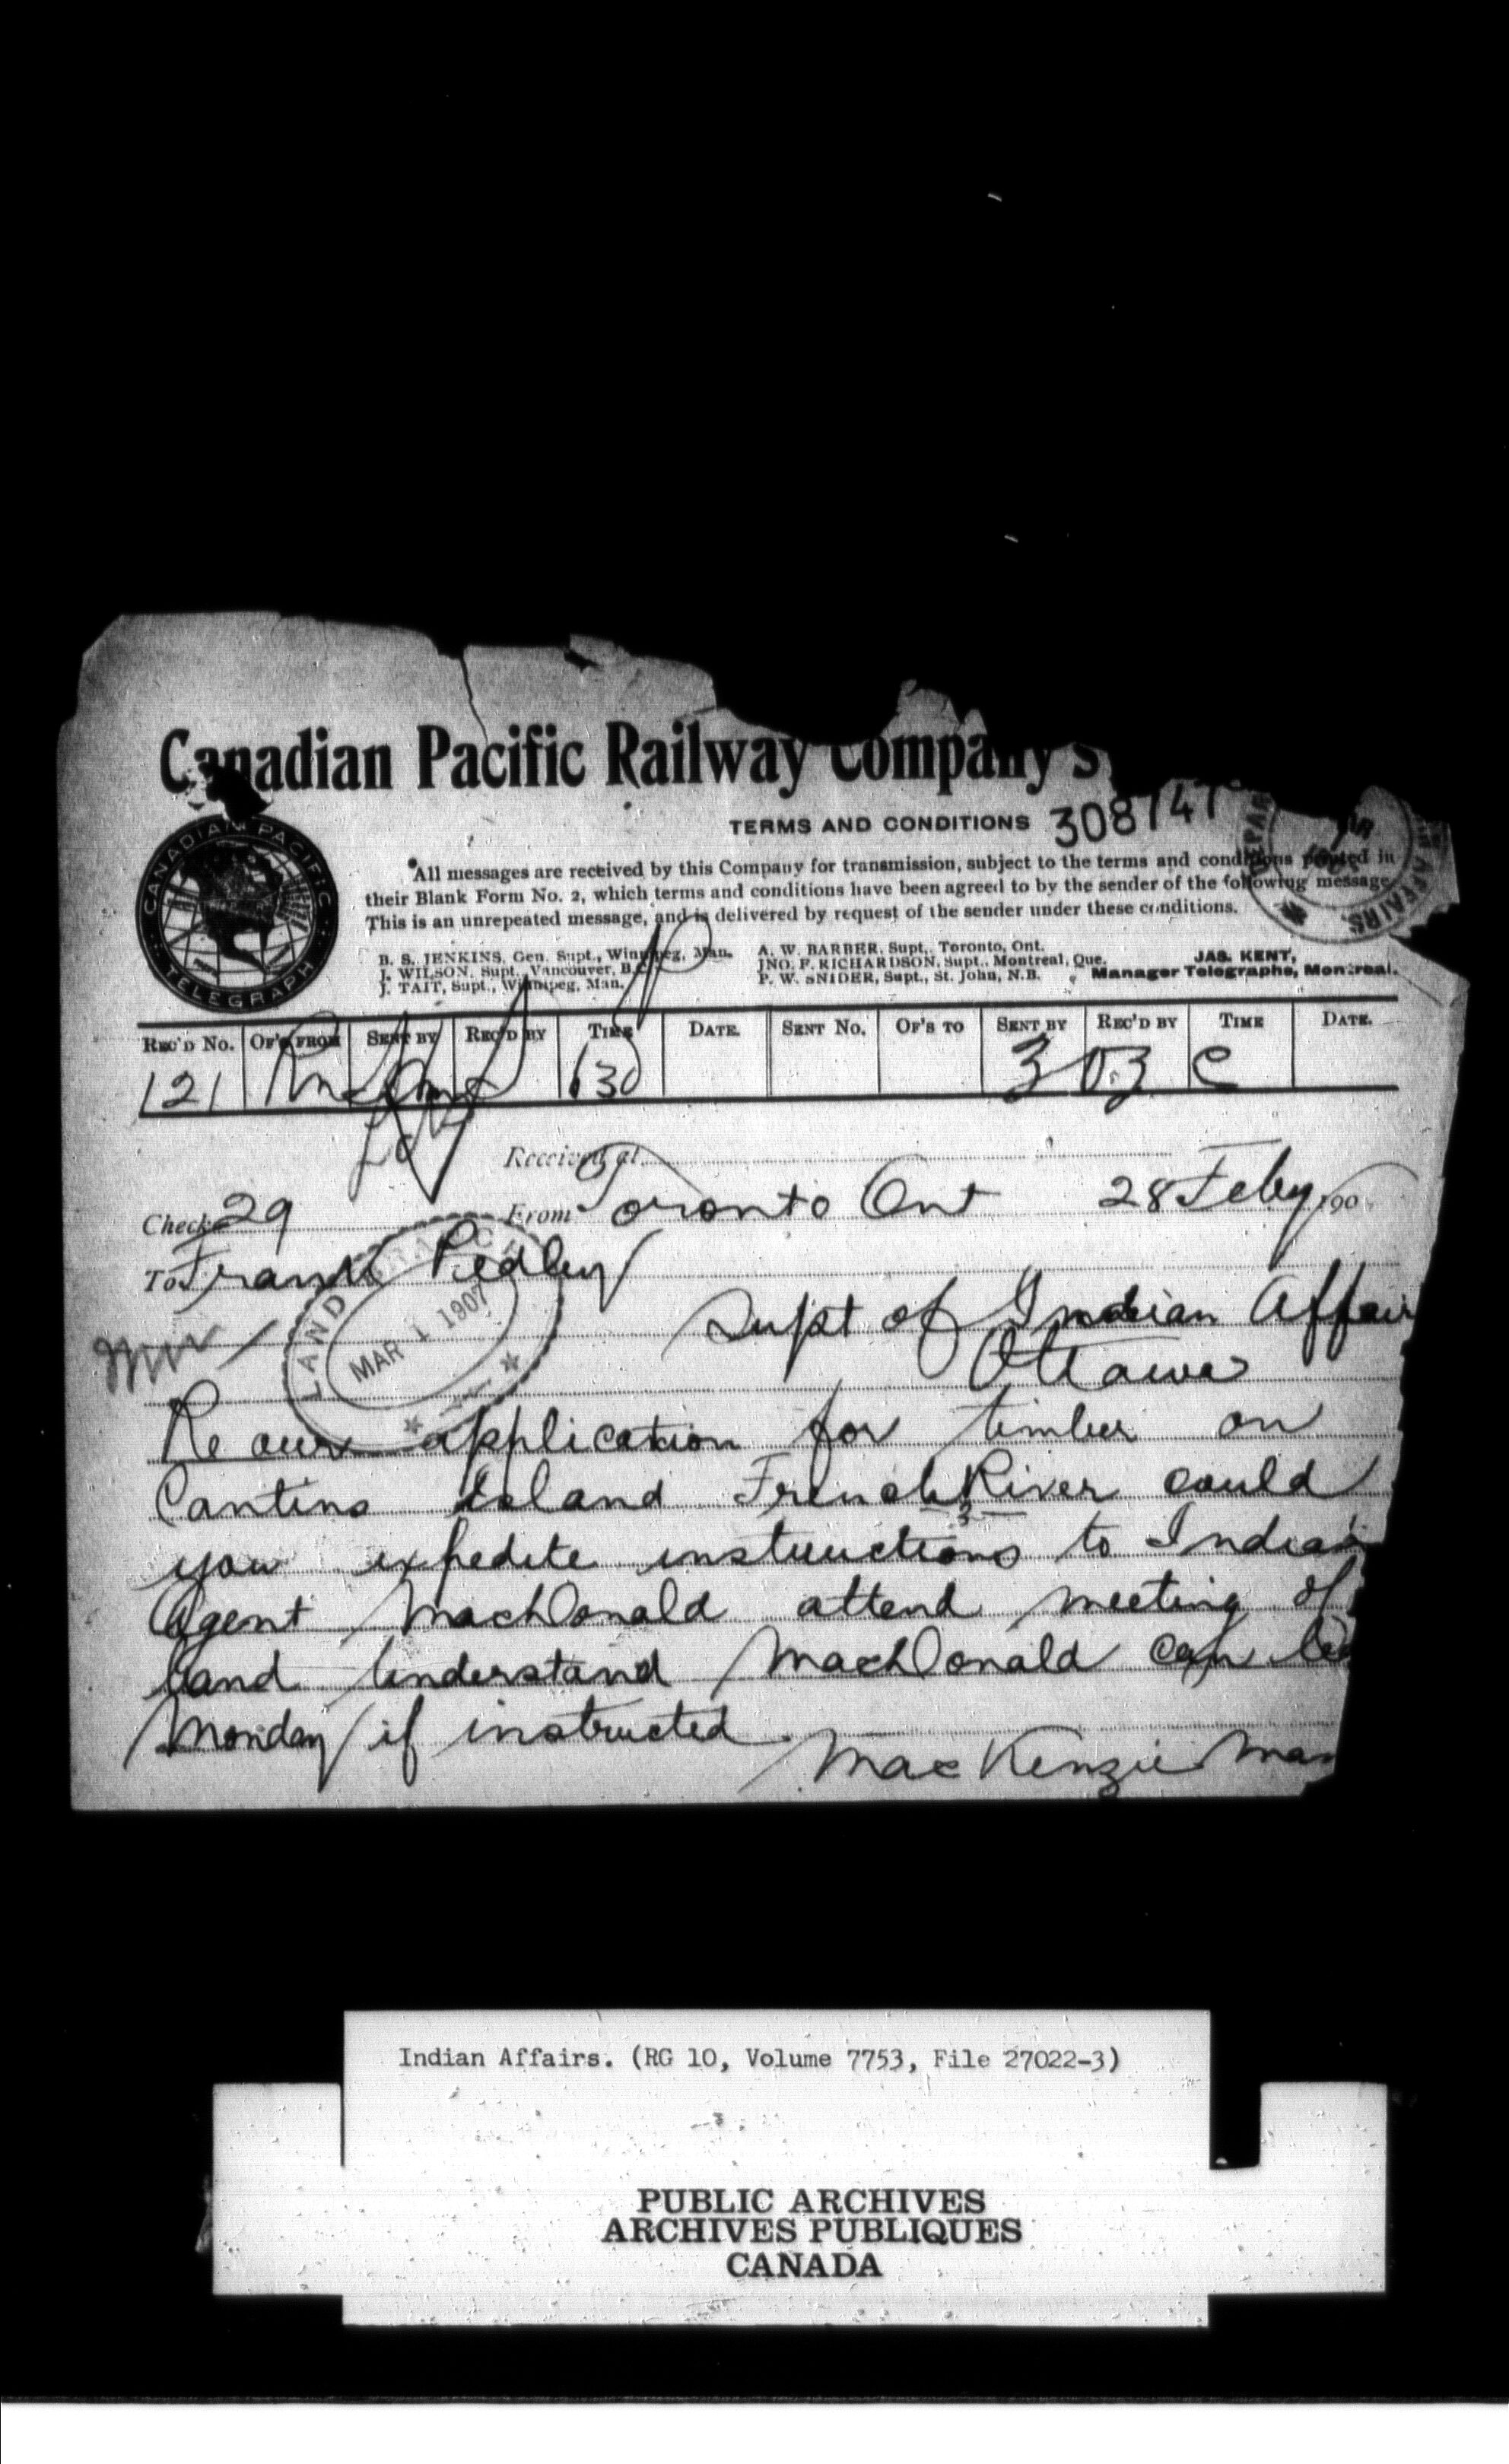 Canadian Pacific Railway Company's
TERMS AND CONDITIONS
308747
All messages are received by this Company for transmission, subject to the terms and conditions printed in
their Blank Form No. 2, which terms and conditions have been agreed to by the sender of the following message
This is an unrepeated message, and is delivered by request of the sender under these conditions.
CANADIAN PACIFIC
TELEGRAPH
AFFAIRS.
B. S. JENKINS, Gen. Supt., Winnipeg, Man.
J. WILSON, Supt., Vancouver, B.C.
J. TAIT, Supt., Winnipeg, Man.
A. W. BARBER, Supt., Toronto, Ont.
JNO. F. RICHARDSON, Supt., Montreal, Que.
P. W. SNIDER, Supt., St. John, N.B.
JAS. KENT,
Manager Telegraphs, Montreal.
REC'D No. OF'S FROM SENT BY REC'D BY TIME DATE. SENT No. OF'S TO SENT BY REC'D BY TIME DATE.
121 130
Received at
Check 29 From Toronto Ont 28 Feby 190
To Frank Pedley
LAND BRANCH
MAR 1 1907
Supt of Indian Affair
Ottawa
Re our application for timber on
Cantins Island French River could
you expedite instructions to Indian
Agent MacDonald attend meeting of
band understand MacDonald can
Monday if instructed
MacKenzie Man
Indian Affairs. (RG 10, Volume 7753, File 27022-3)
PUBLIC ARCHIVES
ARCHIVES PUBLIQUES
CANADA